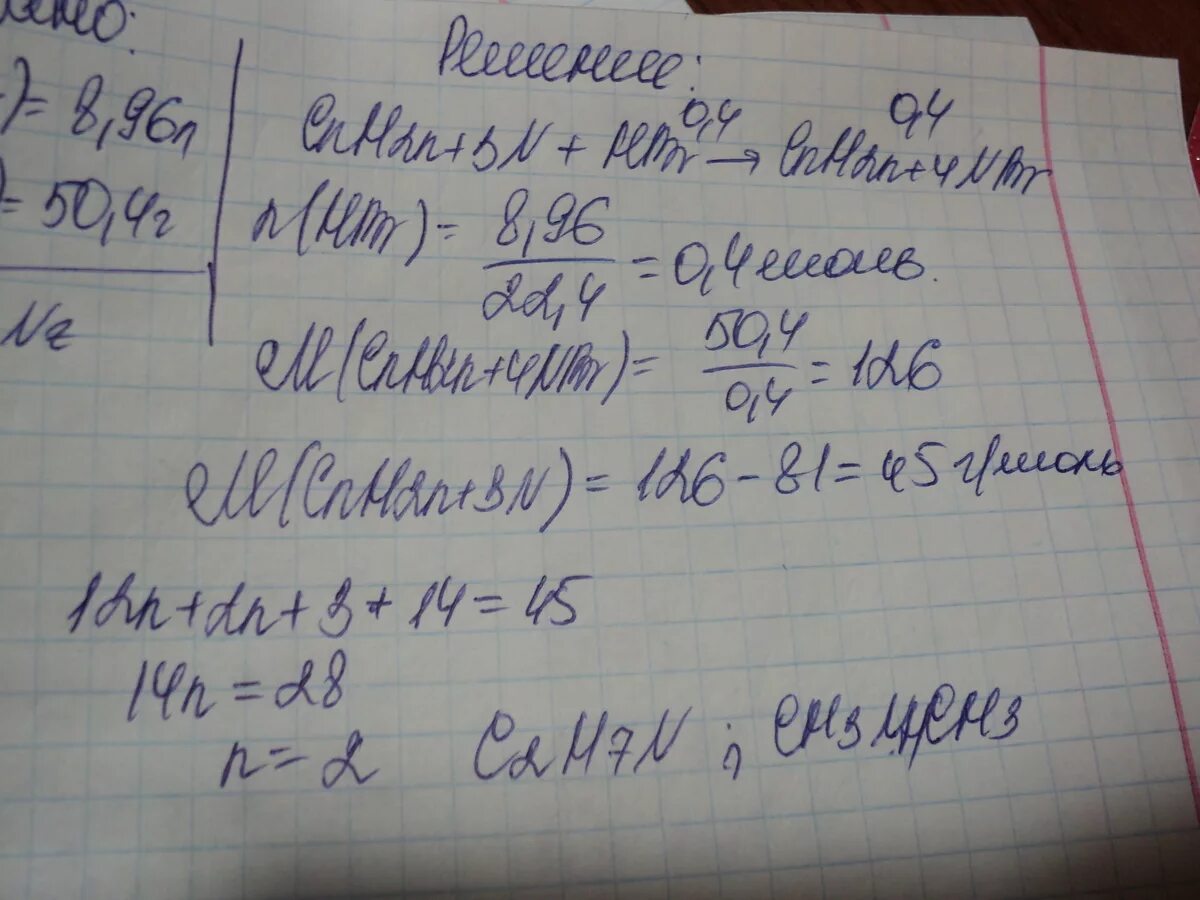 ано:
)= 8,96л
)= 50,4г
Nz
Решение:
0,4 0,4
CnH2n+3N + HBr → CnH2n+4NBr
n(HBr) = 8,96 / 22,4 = 0,4 моль.
M(CnH2n+4NBr) = 50,4 / 0,4 = 126
M(CnH2n+3N) = 126 - 81 = 45 г/моль
12n + 2n + 3 + 14 = 45
14n = 28
n = 2 C2H7N ; CH3NHCH3